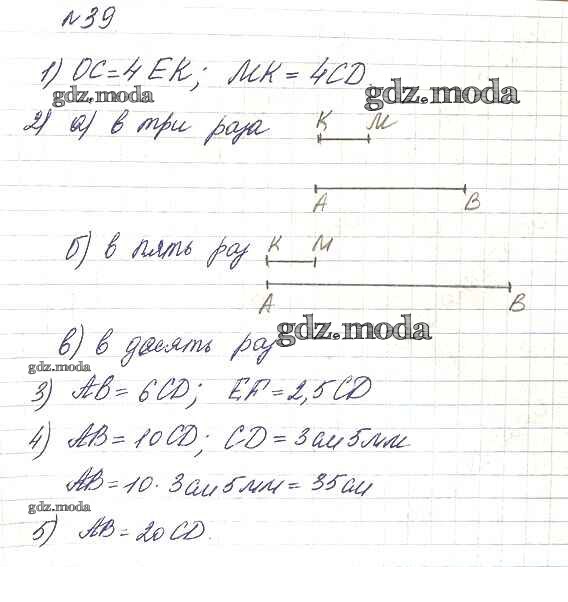 №39
1) OC=4 EK; MK = 4CD
gdz.moda
gdz.moda
2) а) в три раза
K M
A B
б) в пять раз
K M
A B
gdz.moda
в) в десять раз
gdz.moda
3) AB = 6CD; EF = 2,5CD
4) AB = 10CD; CD = 3см5мм
AB = 10 · 3см5мм = 35см
gdz.moda
5) AB = 20CD.